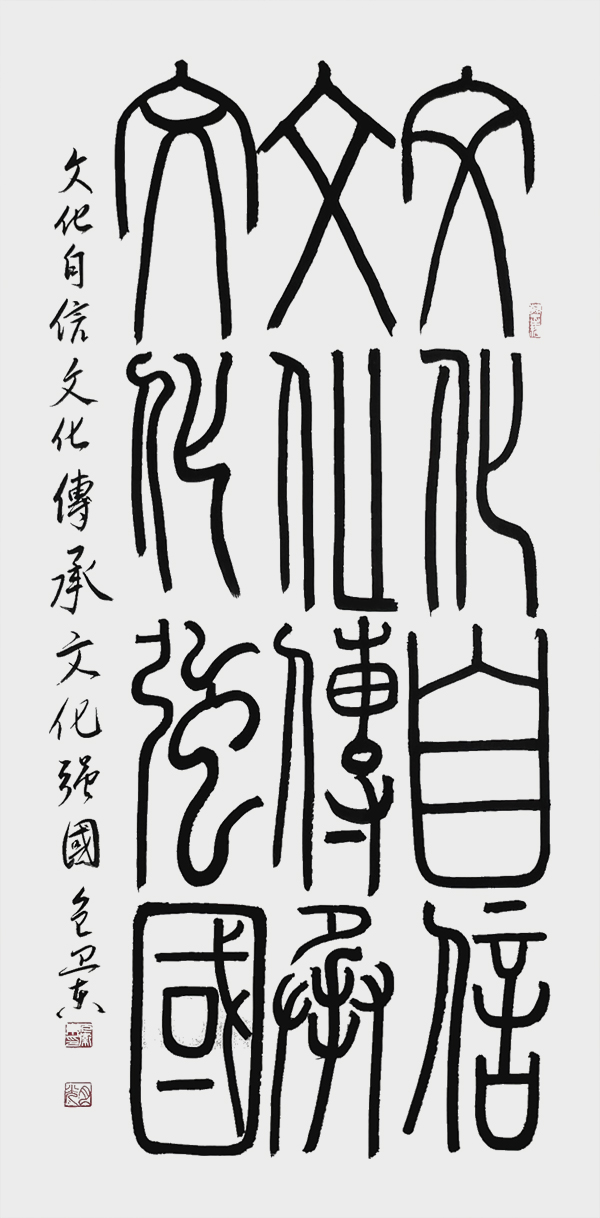 文化自信
文化傳承
文化强國
文化自信文化傳承文化强國